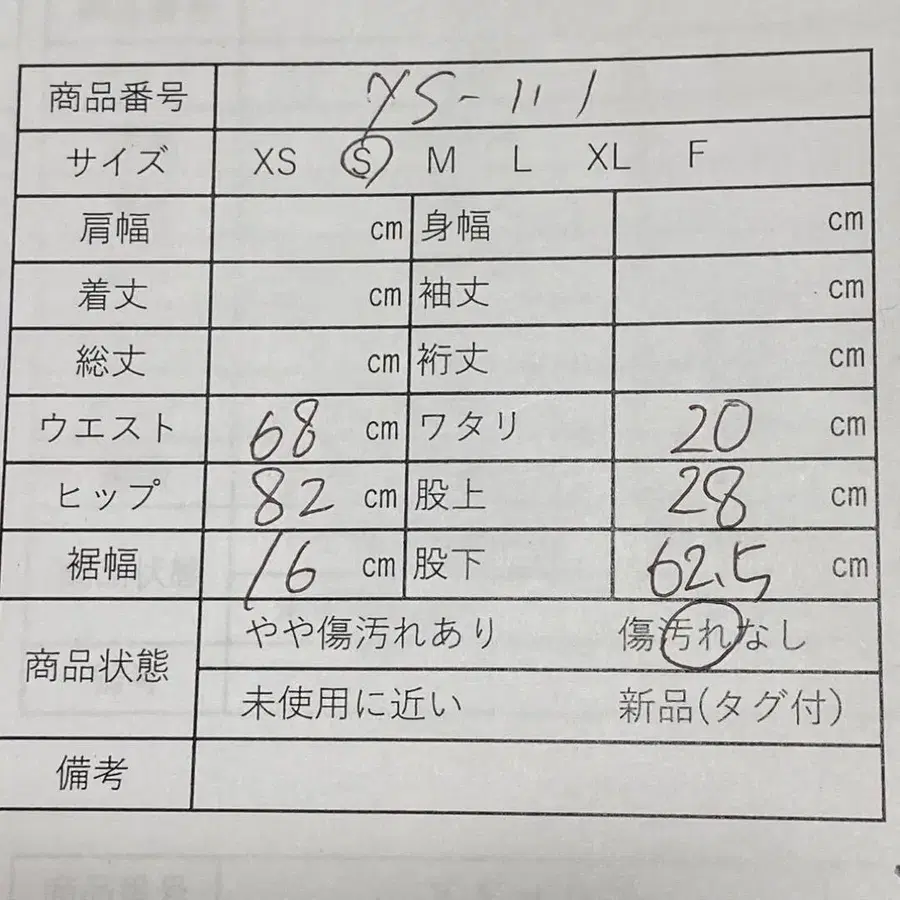 商品番号 YS-111
サイズ XS S M L XL F
肩幅 cm 身幅 cm
着丈 cm 袖丈 cm
総丈 cm 裄丈 cm
ウエスト 68 cm ワタリ 20 cm
ヒップ 82 cm 股上 28 cm
裾幅 16 cm 股下 62.5 cm
商品状態 やや傷汚れあり 傷汚れなし
未使用に近い 新品(タグ付)
備考